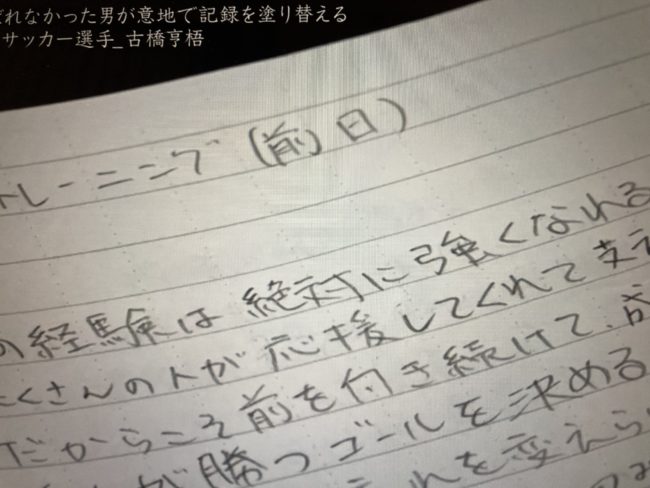 ばれなかった男が意地で記録を塗り替える
サッカー選手_古橋亨梧
トレーニング(前日)
の経験は絶対に強くなれる
たくさんの人が応援してくれて支え
だからこそ前を向き続けて、
が勝つゴールを決める
れを変えら